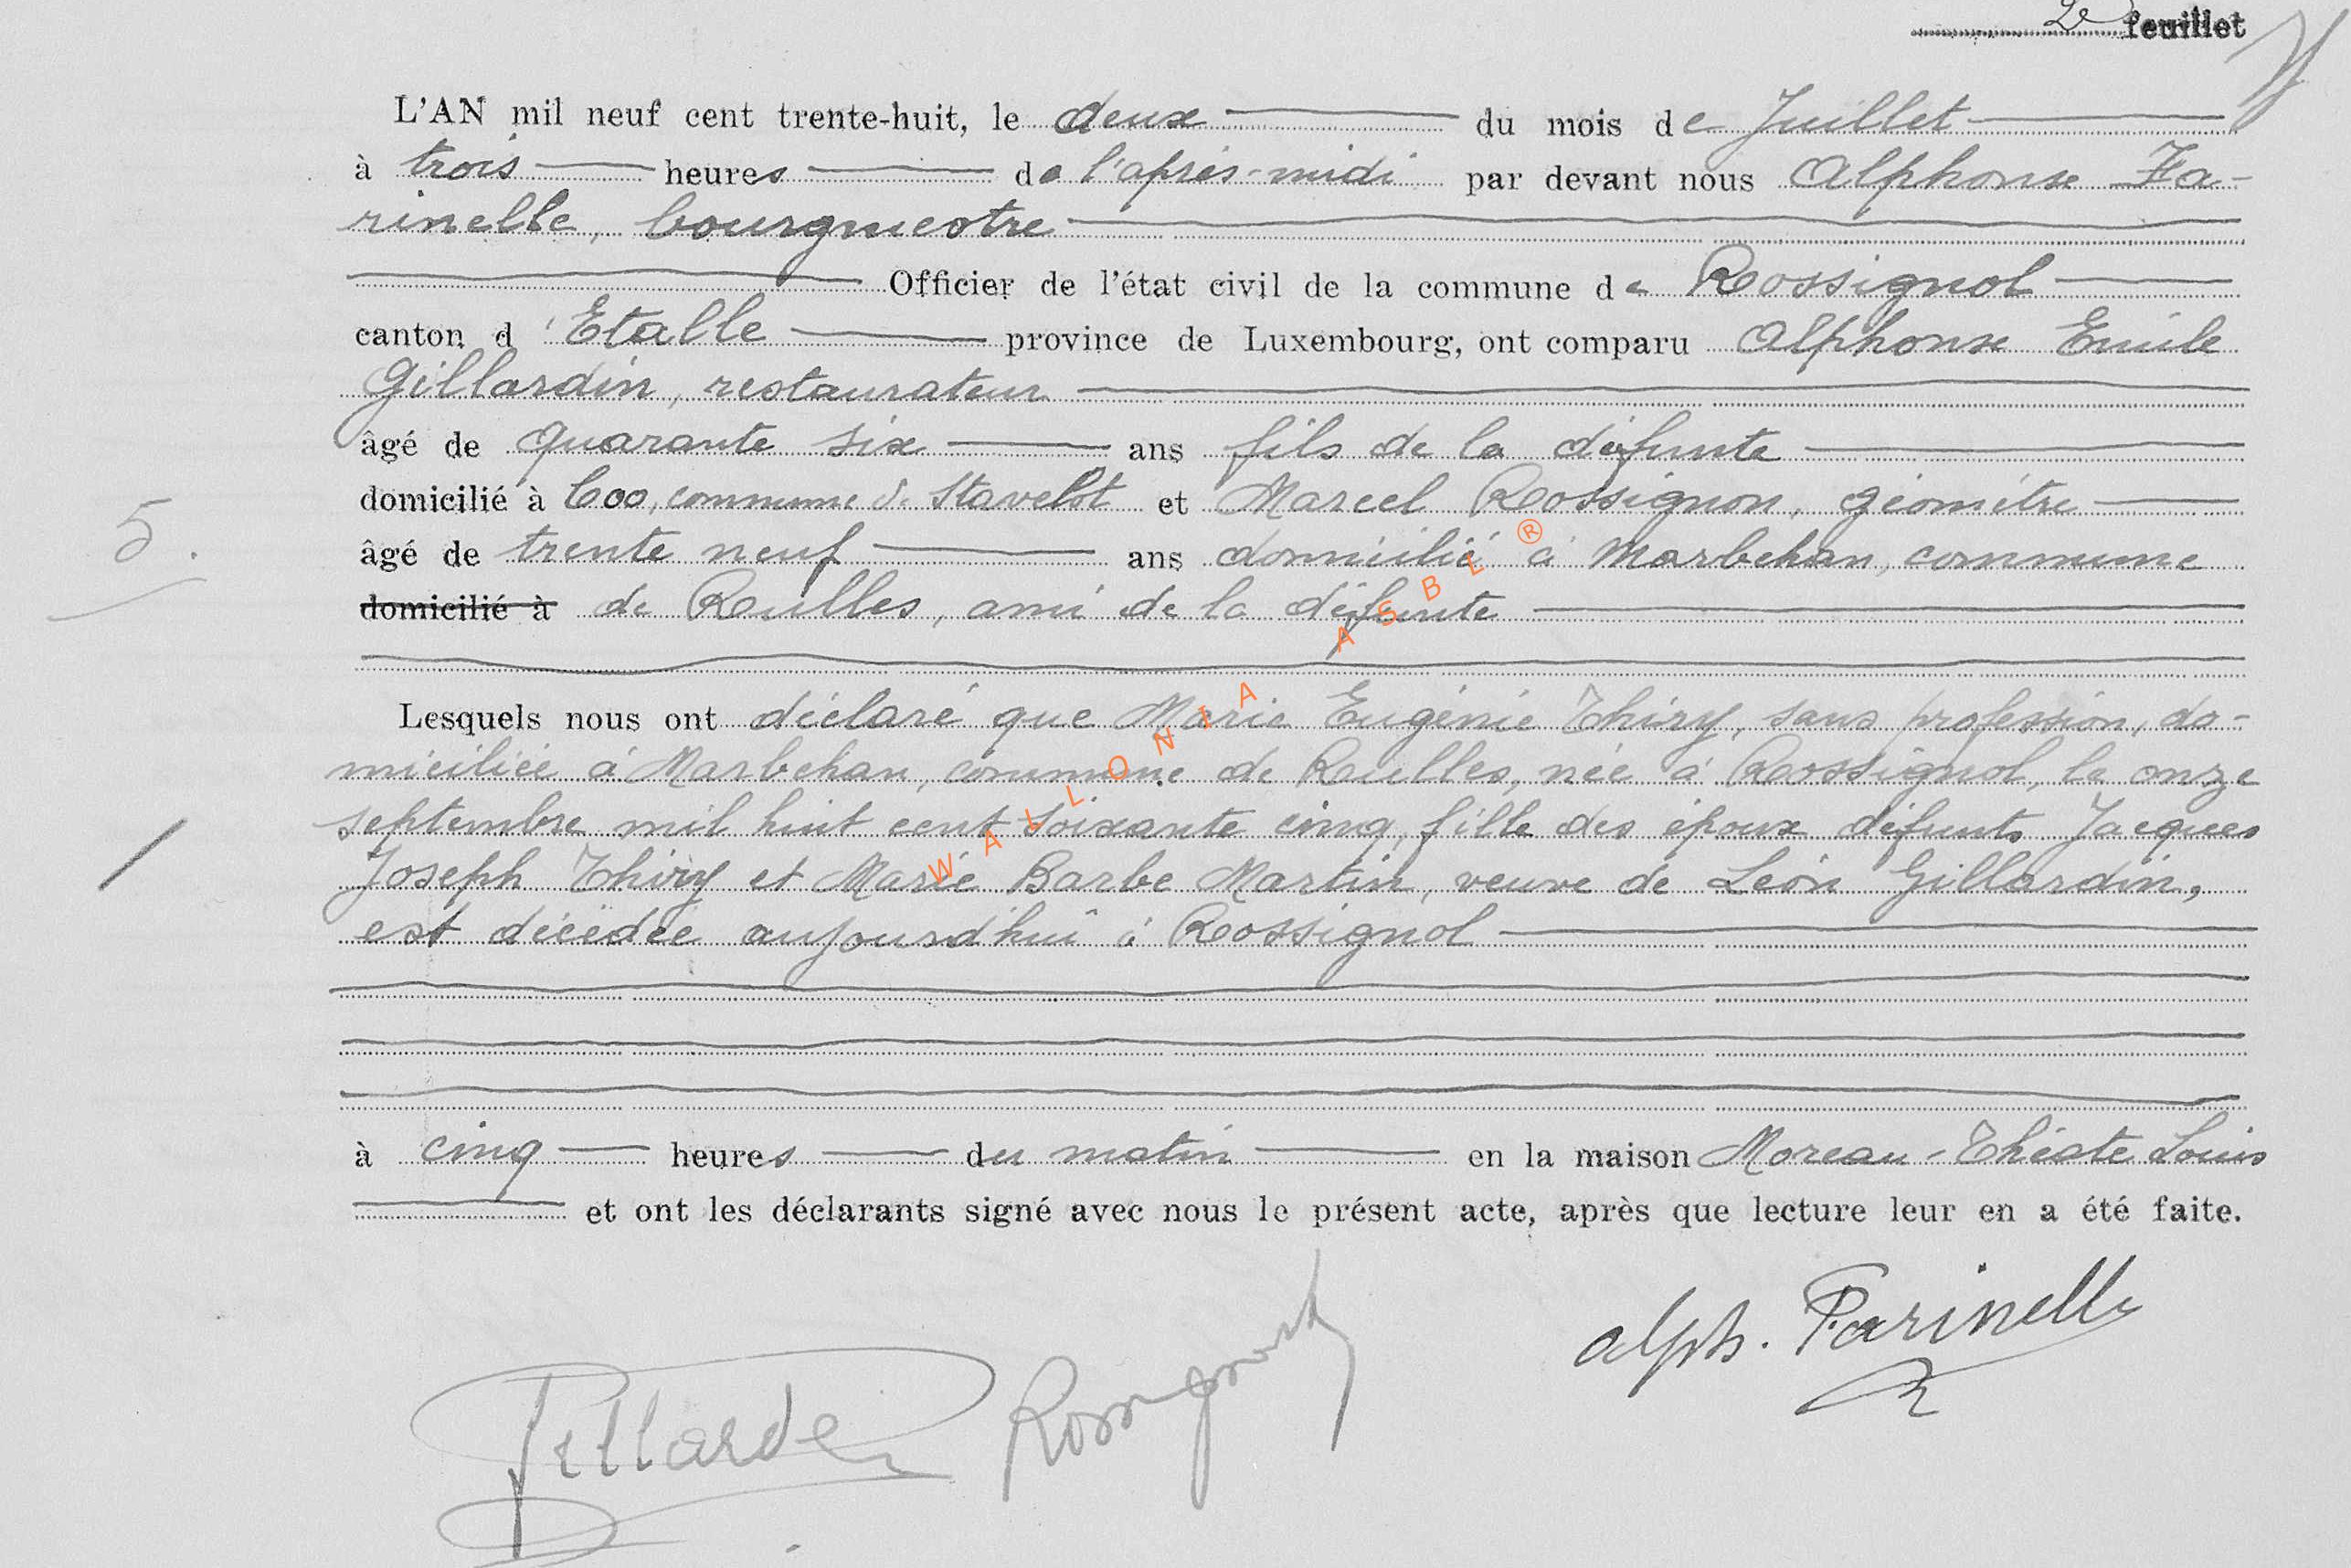 2e feuillet
L'AN mil neuf cent trente-huit, le deux du mois de Juillet
à trois heures de l'après-midi par devant nous Alphonse Fa-
rinelle, bourgmestre
Officier de l'état civil de la commune de Rossignol
canton d'Etalle province de Luxembourg, ont comparu Alphonse Emile
Gillardin, restaurateur
âgé de quarante six ans fils de la défunte
domicilié à Coo, commune de Stavelot et Marcel Rossignon, géomètre
5.
âgé de trente neuf ans domicilié à Marbehan, commune
domicilié à de Rulles, ami de la défunte
Lesquels nous ont déclaré que Marie Eugénie Thiry, sans profession, do-
miciliée à Marbehan, commune de Rulles, née à Rossignol, le onze
septembre mil huit cent soixante cinq, fille des époux défunts Jacques
Joseph Thiry et Marie Barbe Martin, veuve de Léon Gillardin,
est décédée aujourd'hui à Rossignol
à cinq heures du matin en la maison Moreau-Théate Louis
et ont les déclarants signé avec nous le présent acte, après que lecture leur en a été faite.
alph. Farinelle
Gillardin Rossignon
WALLONIA ASBL ®